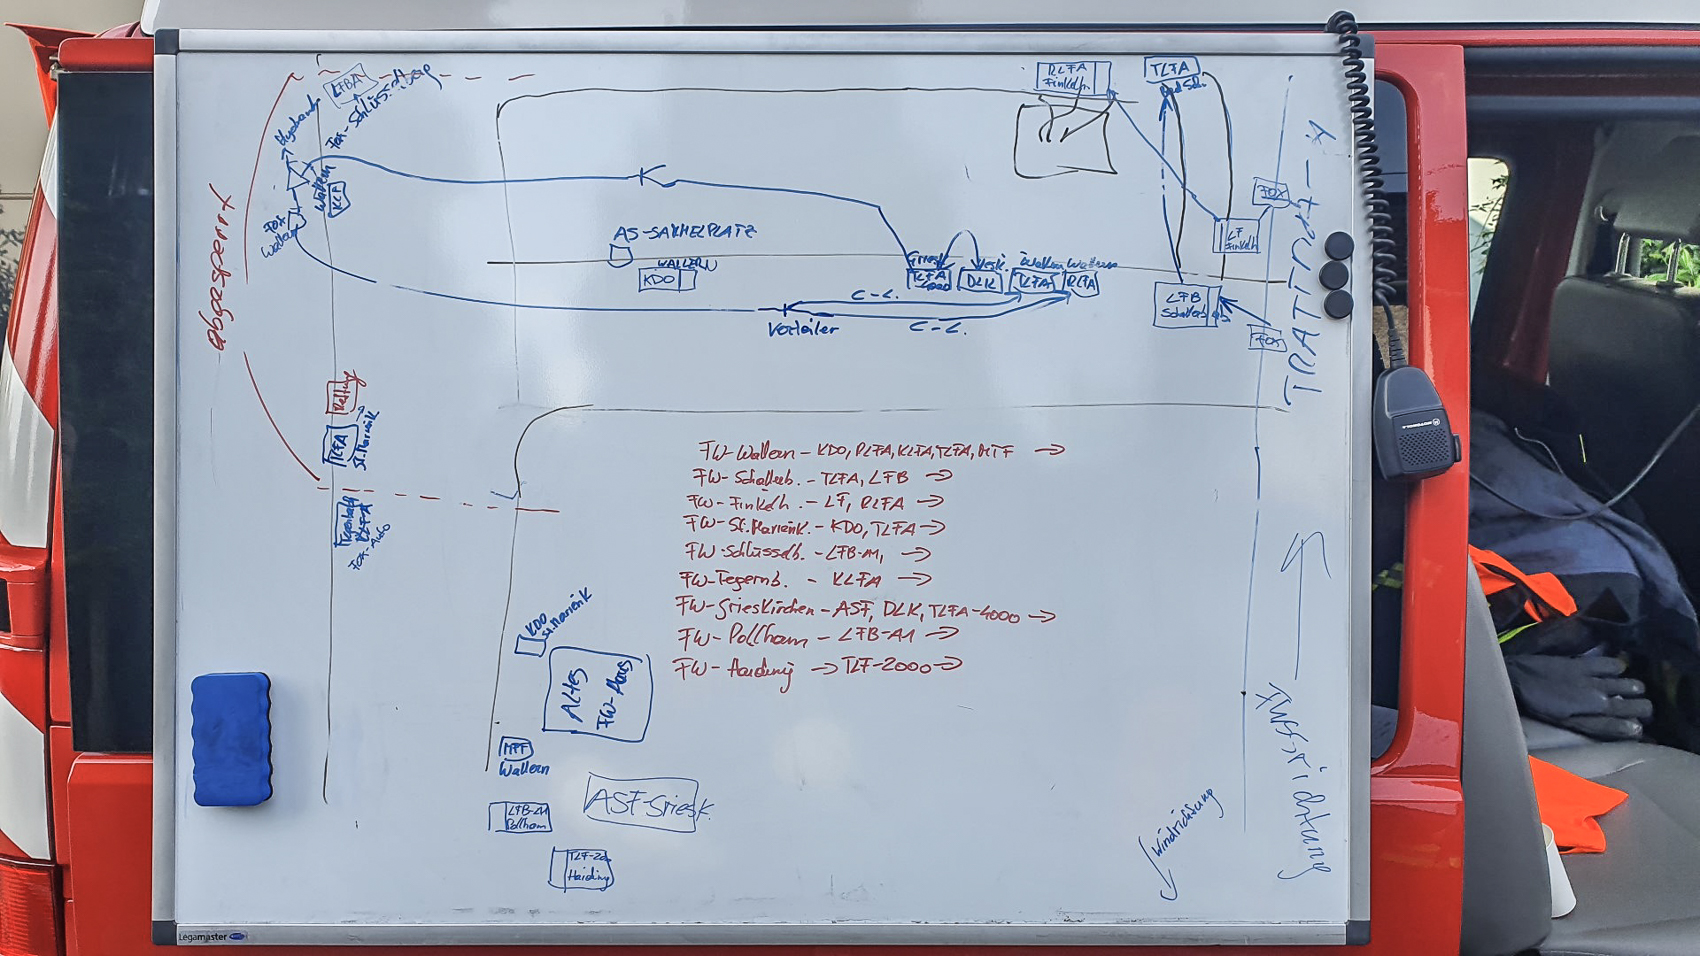 LFBA
Fox-Schlüsselberg
Hydrant
Wallern
KLF
Fox
Wallern
abgesperrt
AS-SAMMELPLATZ
WALLERN
KDO
RLFA
Finkelh.
TLFA
Bad Sch.
FOX
LF
Finkelh
TRATTNACH
Griesk.
TLFA
4000
Griesk.
DLK
Wallern
TLFA
Wallern
RLFA
LFB
Schallerbach
FOX
C-L.
C-L.
Verteiler
Rettung
TLFA
St. Marienk
Tegernb.
KLF-A
Fox-Auto
FW-Wallern - KDO, RLFA, KLFA, TLFA, MTF →
FW-Schallerb. - TLFA, LFB →
FW-Finkelh. - LF, RLFA →
FW-St. Marienk. - KDO, TLFA →
FW-Schlüsselb. - LFB-A1, →
FW-Tegernb. - KLFA →
FW-Grieskirchen - ASF, DLK, TLFA-4000 →
FW-Pollham - LFB-A1 →
FW-Haiding → TLF-2000 →
KDO
St. Marienk
ALTES
FW-Haus
MTF
Wallern
LFB-A1
Pollham
ASF-Griesk.
TLF-2000
Haiding
Windrichtung
Flussrichtung
Legamaster
MOTOROLA